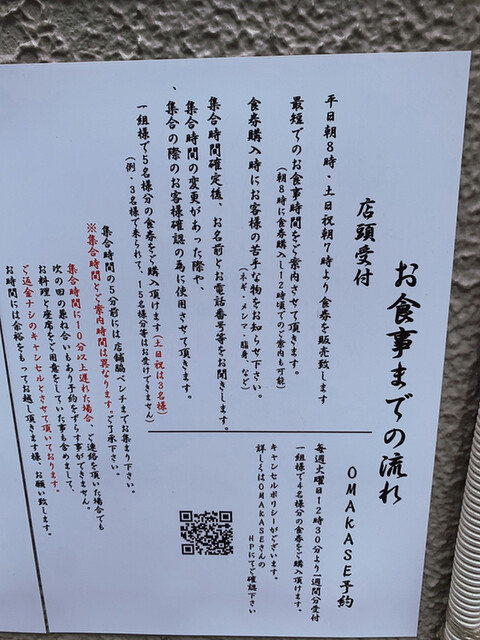 お食事までの流れ
店頭受付
平日朝8時・土日祝朝7時より食券を販売致します
最短でのお食事時間をご案内させて頂きます。
(朝8時に食券購入→12時頃でのご案内も可能)
食券購入時にお客様の苦手な物をお知らせ下さい。
(ネギ・メンマ・脂身、など)
集合時間確定後、お名前とお電話番号等をお聞きします。
集合時間の変更があった際や、
集合の際のお客様確認の為に使用させて頂きます。
一組様で5名様分の食券をご購入頂けます(土日祝は3名様)
(例・3名様で来られて、15名様分等はお受けできません)
集合時間の5分前には店舗脇ベンチまでお集まり下さい。
※集合時間とご案内時間は異なります。ご了承下さい。
集合時間に10分以上遅れた場合、ご連絡を頂いた場合でも
次の回の兼ね合いもあり予約をずらす事ができません。
お料理や座席をご用意をしていた事も含めまして、
ご返金ナシのキャンセルとさせて頂いております。
お時間には余裕をもってお越し頂きます様、お願い致します。
OMAKASE予約
毎週火曜日12時30分より一週間分受付
一組様で4名様分の食券をご購入頂けます。
キャンセルポリシーがございます。
詳しくはOMAKASEさんの
HPにてご確認下さい